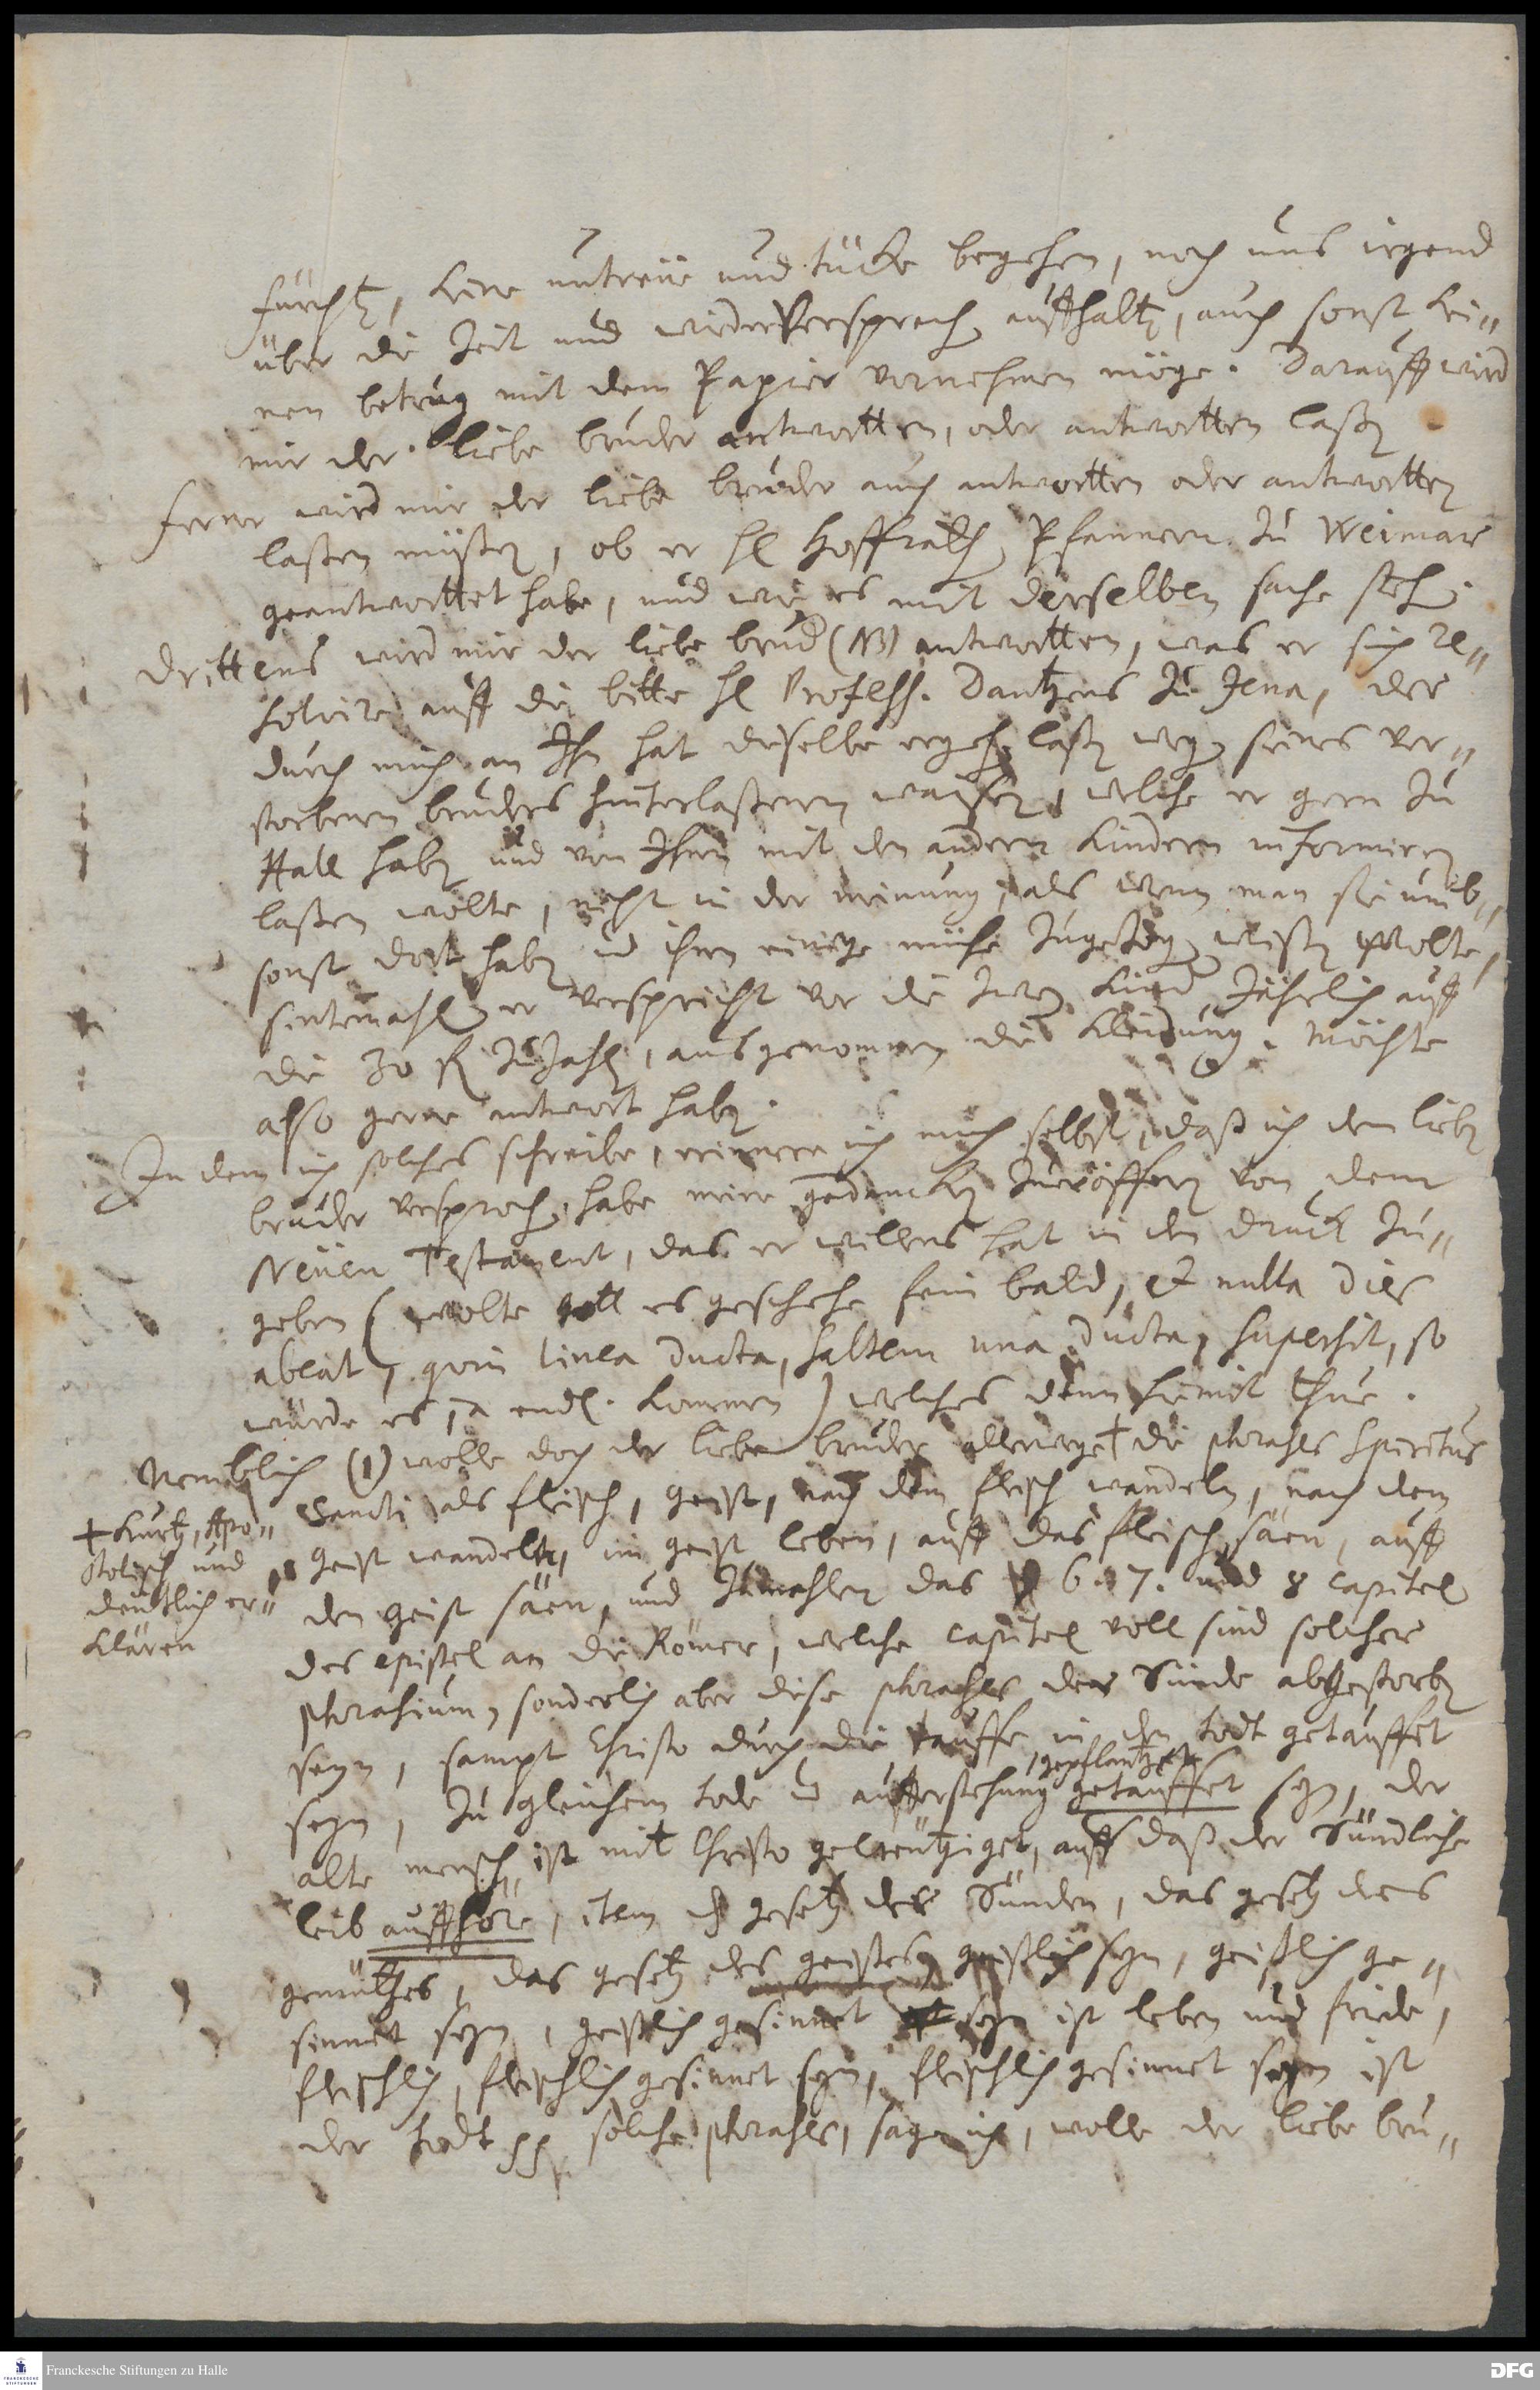 fürchte, keine untreüe und tücke begehen, noch uns irgend
über die Zeit und wieder Versprechen auffhalten, auch sonst kei-
nen betrug mit dem Papier vornehmen möge. Darauff wird
mir der liebe bruder antwortten, oder antwortten laßen
ferner wird mir der liebe bruder auch antwortten oder antwortten
laßen müßen, ob er H. Hoffrath Pfannern zu Weimar
geantwortet habe, und wie es mit derselben sache stehe.
Drittens wird mir der liebe bruder (NB) antwortten, was er sich re-
solvire auff die bitte H. Profess. Dantzens zu Jena, der
durch mich an Ihn hat dieselbe ergehen laßen wegen seines ver-
storbenen bruders hinterlaßenen waisen, welche er gern zu
Hall haben und von Ihnen mit den andern Kindern informiren
laßen wolte, nicht in der meinung, als wenn man sie umb-
sonst dort haben und ihnen einige mühe zugezogen wißen wolte,
sintemahl er verspricht vor die zwey Kinder Jährlich auff
die 30 fl zuzahlen, ausgenommen die Kleidung. Möchte
also gerne antwort haben.
In dem ich solches schreibe, erinnere ich mich selbst, daß ich dem lieben
bruder versprochen habe meine gedancken zueröffnen von dem
Neüen Testament, das er willens hat in den druck zu-
geben (wolte gott es geschehe fein bald, et nulla dies
abeat, quin linea ducta, saltem una ducta, supersit, so
würde es ja endl. kommen) welches denn hiemit thue.
Nemblich (1) wolle doch der liebe bruder allewege † die phrases Spiritus
† kurtz, Apo-
stolisch und
deutlich er-
klären
Sancti als fleisch, geist, nach dem fleisch wandeln, nach dem
geist wandeln, im geist leben, auff das fleisch säen, auff
den geist säen, und zumahlen das 6. 7. und 8 capitel
der epistel an die Römer, welche capitel voll sind solcher
phrasium, sonderlich aber diese phrases der Sünde abgestorben
seyn, sampt Christo durch die tauffe in den todt getauffet
seyn, zu gleichem tode und aufferstehung getauffet seyn, der
gepflantzet
alte mensch ist mit Christo gekreützigt, auff daß der Sündliche
leib auffhöre, item das gesetz der Sünden, das gesetz des
gemüthes, das gesetz des geistes, geistlich seyn, geistlich ge-
sinnet seyn, geistlich gesinnet seyn ist leben und friede,
fleischlich, fleischlich gesinnet seyn, fleischlich gesinnet seyn ist
der todt pp solche phrases, sage ich, wolle der liebe bru-
Franckesche Stiftungen zu Halle
FRANCKESCHE STIFTUNGEN
DFG